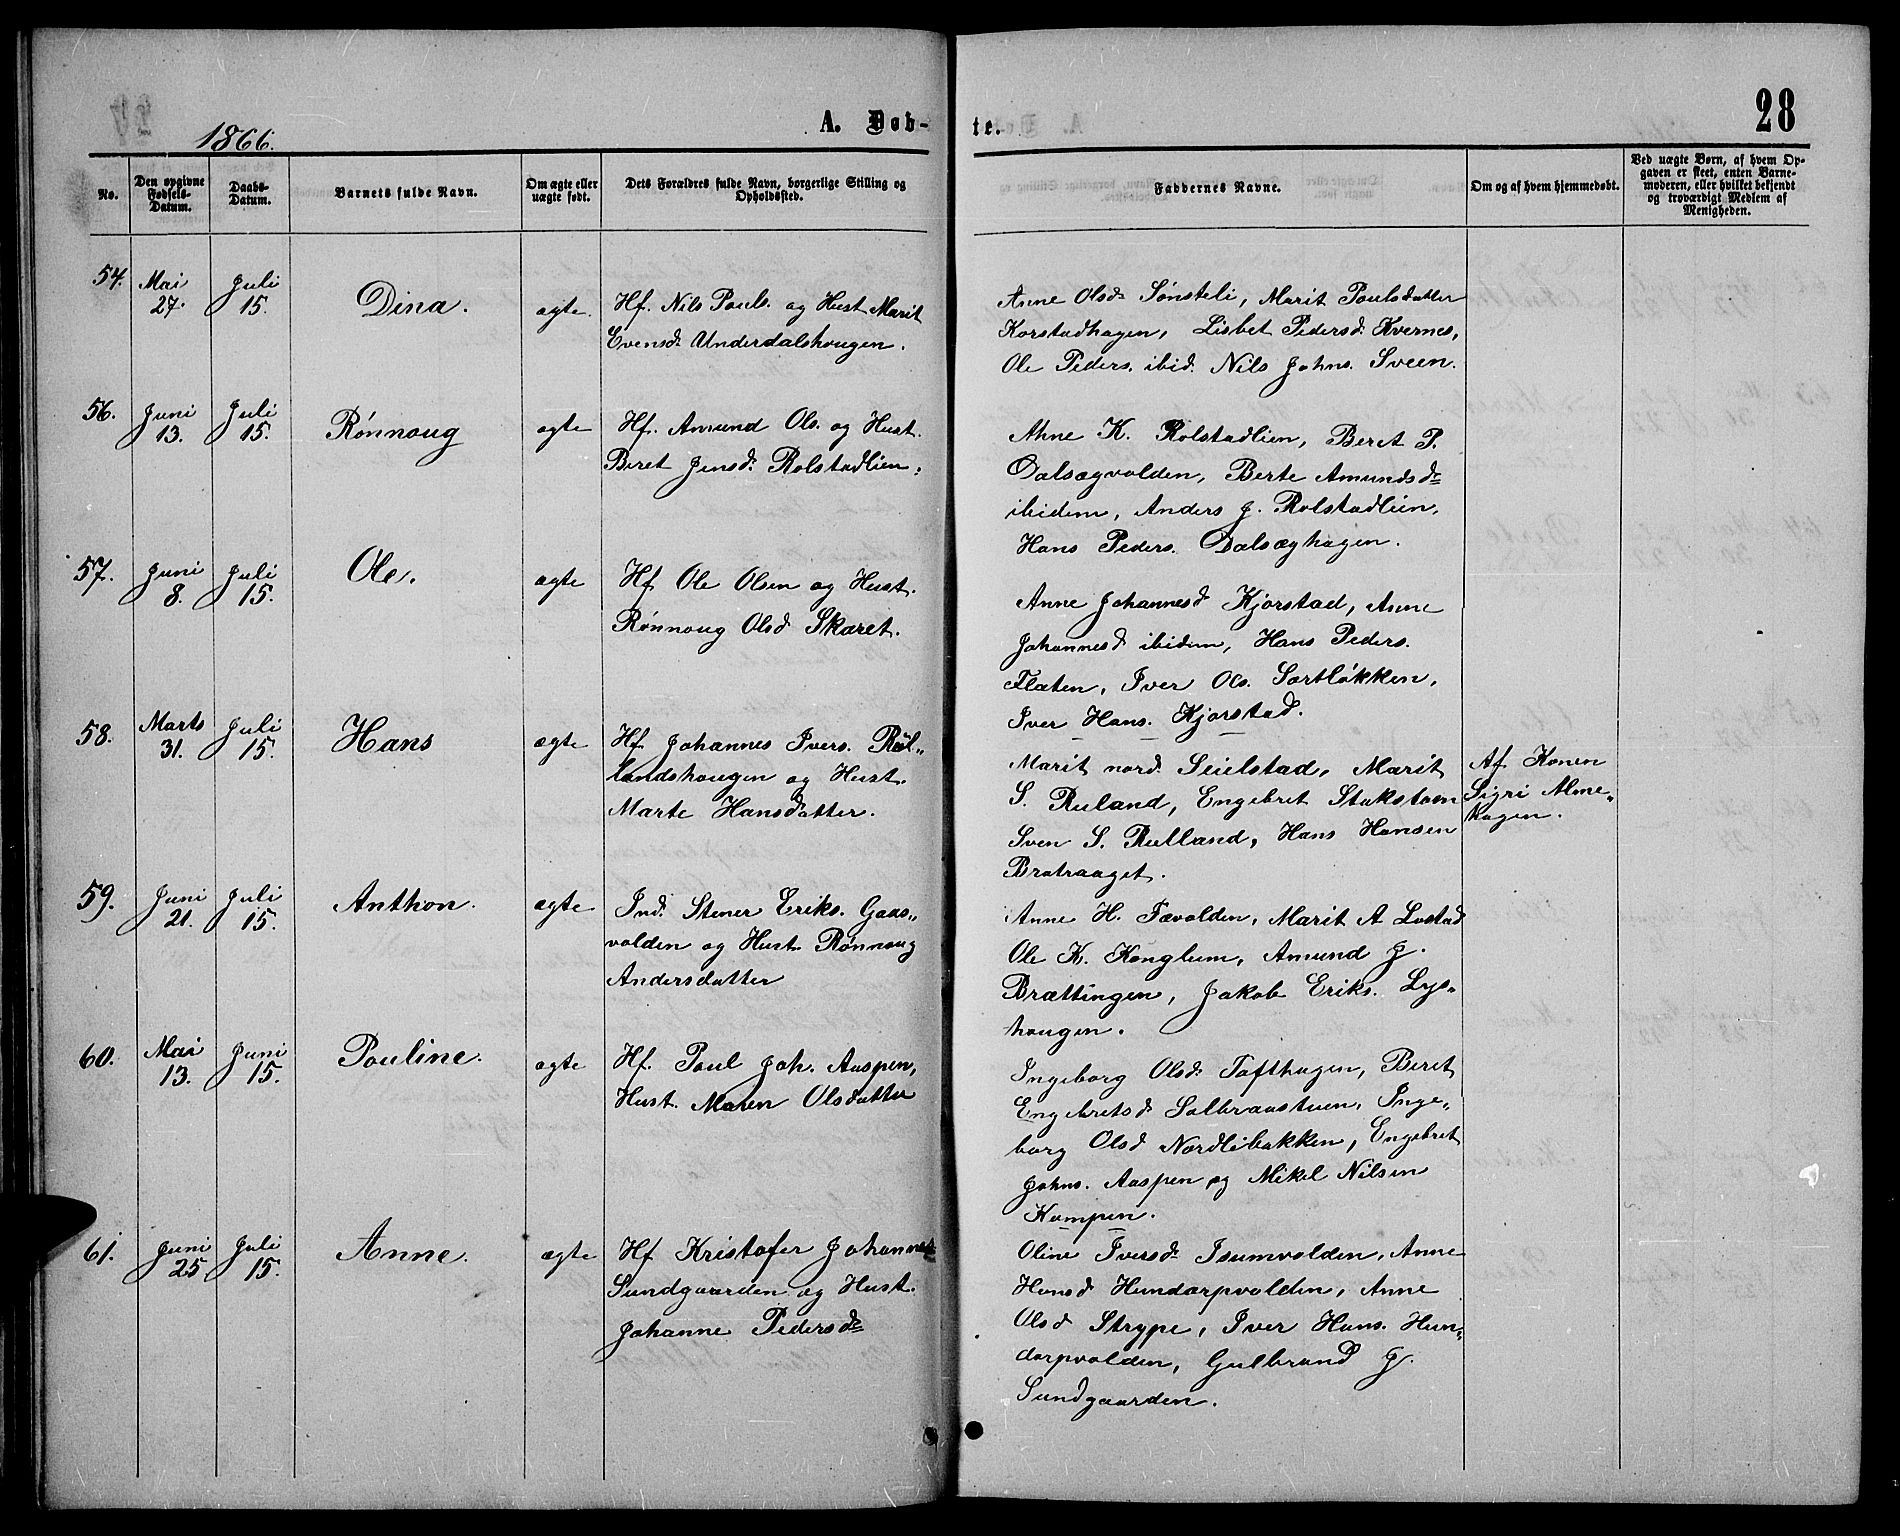 1866.
A. Døb-
te.
28
No.
Den opgivne Fødsels-Datum.
Daabs-Datum.
Barnets fulde Navn.
Om ægte eller uægte født.
Dets Forældres fulde Navn, borgerlige Stilling og Opholdssted.
Faddernes Navne.
Om og af hvem hjemmedøbt.
Ved uægte Børn, af hvem Op-
gaven er skeet, enten Barne-
moderen, eller hvilket bekjendt
og troværdigt Medlem af
Menigheden.
54. Mai 27. Juli 15. Dina. ægte.
Hf. Nils Pouls. og Hust Marit
Evensd. Underdalshougen.
Anne Olsd. Sønsteli, Marit Poulsdatter
Korstadhagen, Lisbet Pedersd. Kvernes,
Ole Peders. ibid. Nils Johns. Sveen.
56. Juni 13. Juli 15. Rønnoug ægte
Hf. Amund Ols. og Hust.
Beret Jensd. Rolstadlien.
Ahne K. Rolstadlien, Beret P.
Dalsægvolden, Berte Amundsd.
ibidem, Anders J. Rolstadlien,
Hans Peders. Dalsæghagen.
57. Juni 8. Juli 15. Ole. ægte
Hf Ole Olsen og Hust.
Rønnoug Olsd Skaret.
Anne Johannesd Kjorstad, Anne
Johannesd ibidem, Hans Peders.
Flaten, Iver Ols. Sortløkken,
Iver Hans. Kjorstad.
58. Marts 31. Juli 15. Hans ægte
Hf. Johannes Ivers. Rul„
landshougen og Hust.
Marte Hansdatter.
Marit nord. Seielstad, Marit
S. Ruland, Engebret Stakstoen
Sven S. Rulland, Hans Hansen
Bratraaget.
Af Konen
Sigri Alme„
hagen.
59. Juni 21. Juli 15. Anthon. ægte
Ind. Stener Eriks. Gaas„
volden og Hust. Rønnoug
Andersdatter
Anne H. Fævolden, Marit A Lostad
Ole K. Konglum, Amund J.
Brættingen, Jakob Eriks. Lys„
hougen.
60. Mai 13. Juni 15. Pouline. ægte
Hf. Poul Joh. Aaspen,
Hust. Maren Olsdatter
Ingeborg Olsd. Tofthagen, Beret
Engebretsd Solbraastuen, Inge„
borg Olsd Nordlibakken, Engebret
Johns. Aaspen og Mikel Nilsen
Kampen.
61. Juni 25 Juli 15. Anne. ægte
Hf Kristofer Johannes.
Sundgaarden og Hust.
Johanne Pedersd.
Oline Iversd. Isumvolden, Anne
Hansd Hundorpvolden, Anne
Olsd Strype, Iver Hans. Hun„
dorpvolden, Gulbrand J.
Sundgaarden.